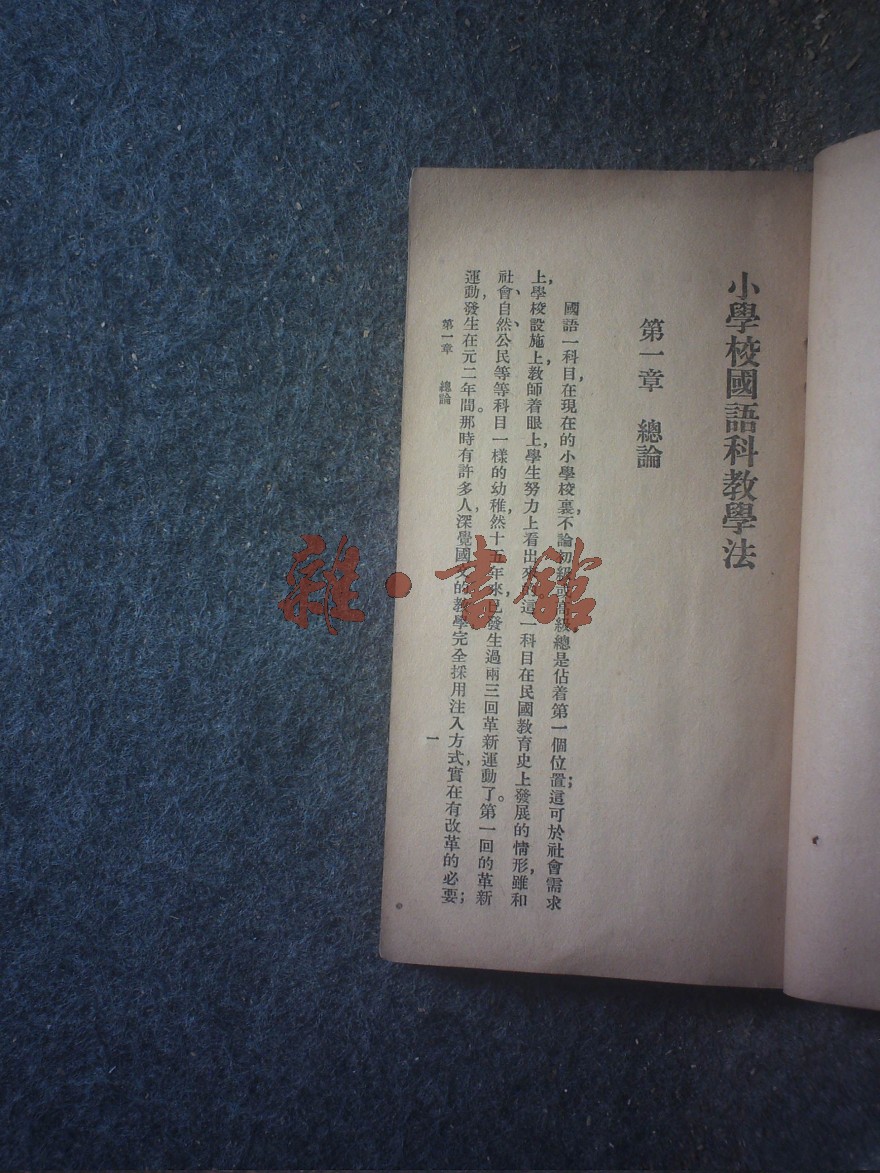 小學校國語科教學法
第一章　總論
國語一科目，在現在的小學校裏，不論初級或高級，總是佔着第一個位置；這可於社會需求
上，學校設施上，教師着眼上，學生努力上看出來的。這一科目在民國教育史上發展的情形，雖和
社會、自然、公民等等科目一樣的幼稚，然十五年來，已發生過兩三回革新運動了。第一回的革新
運動，發生在元二年間。那時有許多人，深覺國文的教學完全採用注入方式，實在有改革的必要；
第一章　總論
一
雜·書館